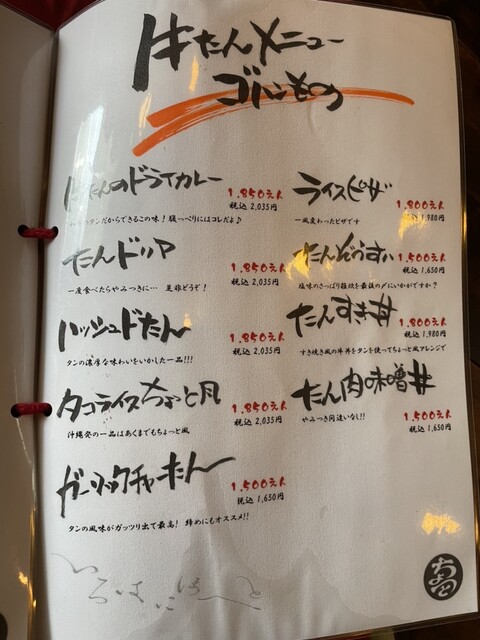 牛たんメニュー
ゴハンもの
たんのドライカレー
1.850えん
税込 2,035円
タンだからできるこの味！腹っぺりにはコレだよ♪
たんドリア
1.850えん
税込 2,035円
一度食べたらやみつきに… 是非どうぞ！
ハッシュドたん
1.850えん
税込 2,035円
タンの濃厚な味わいをいかした一品!!!
タコライスちょっと風
1.850えん
税込 2,035円
沖縄発の一品はあくまでもちょっと風
ガーリックチャーたん
1.500えん
税込 1,650円
タンの風味がガッツリ出て最高! 締めにもオススメ!!
ライスピザ
1.800えん
税込 1,980円
一風変わったピザです
たんぞうすい
1.500えん
税込 1,650円
塩味のさっぱり雑炊を最後の〆にいかがですか？
たんすき丼
1.800えん
税込 1,980円
すき焼き風の牛丼をタンを使ってちょっと風アレンジで
たん肉味噌丼
1.500えん
税込 1,650円
やみつき間違いなし!!
いろはにほへと
ちょっと